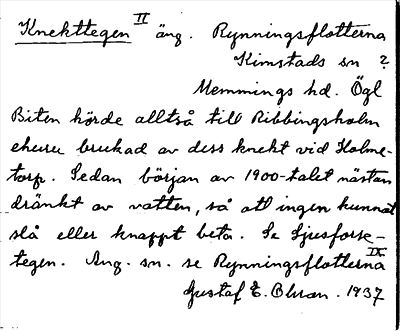 Knekttegen II äng. Rynningsflotterna
Kimstads sn ?
Memmings hd. Ögl
Biten hörde alltså till Ribbingsholm
ehuru brukad av dess knekt vid Holme-
torp. Sedan början av 1900-talet nästan
dränkt av vatten, så att ingen kunnat
slå eller knappt beta. Se Ljusforse-
tegen. Ang. sn. se Rynningsflotterna IX.
Gustaf E. Blman. 1937